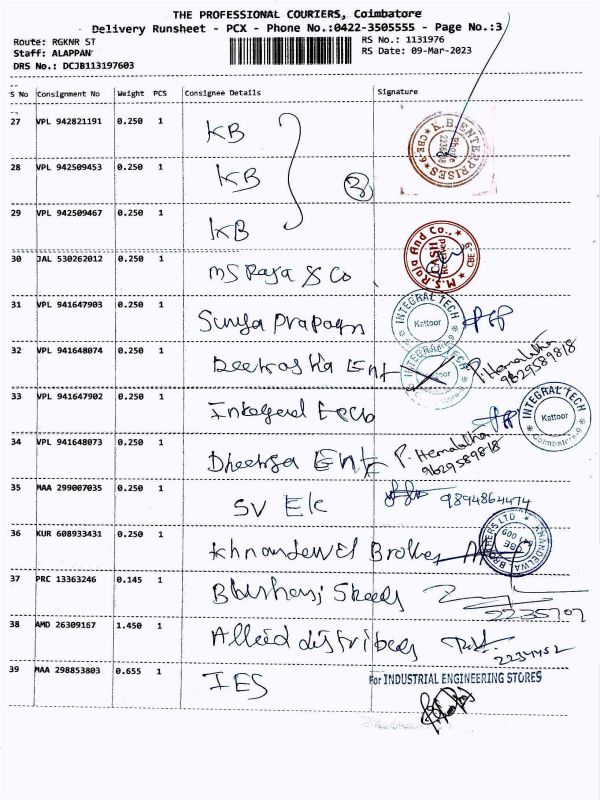 THE PROFESSIONAL COURIERS, Coimbatore
Delivery Runsheet - PCX - Phone No.:0422-3505555 - Page No.:3
Route: RGKNR ST
RS No.: 1131976
Staff: ALAPPAN
RS Date: 09-Mar-2023
DRS No.: DCJB113197603
S No Consignment No Weight PCS Consignee Details Signature
27 VPL 942821191 0.250 1 KB
K.B. ENTERPRISES ★ CBE-9 ★
Phone
2236808
28 VPL 942509453 0.250 1 KB
3
29 VPL 942509467 0.250 1 KB
30 JAL 530262012 0.250 1 MS Raja & Co
M.S. Raja And Co., ★ CBE-9 ★
CASH
Received
31 VPL 941647903 0.250 1 Surya Prapagn
INTEGRAL TECH
Kattoor
32 VPL 941648074 0.250 1 Deekasha Ent
INTEGRAL TECH
Kattoor
P. Hemalatha
9629589818
33 VPL 941647902 0.250 1 Integral Tech
INTEGRAL TECH
Kattoor
Coimbatore-9
34 VPL 941648073 0.250 1 Dheeksa Ent
P. Hemalatha
9629589818
35 MAA 299007035 0.250 1 SV Ele
9894864474
36 KUR 608933431 0.250 1 Khnandewel Brothers
KHANDELWAL BROTHERS LTD
CBE
641 009
37 PRC 13363246 0.145 1 Bbushanj Steels
2235707
38 AMD 26309167 1.450 1 Allied distribeds
2234452
39 MAA 298853803 0.655 1 IES
For INDUSTRIAL ENGINEERING STORES